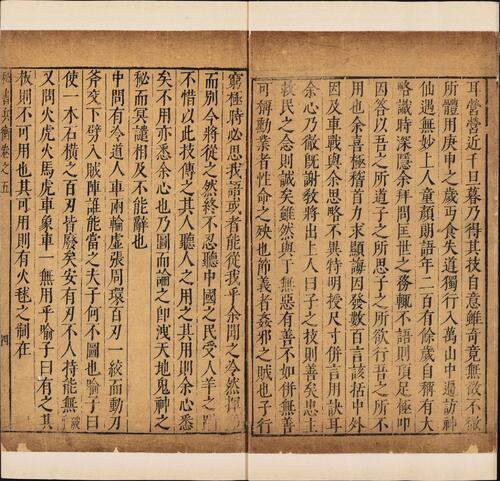 耳營營近千旦暮乃得其技自意雖奇無徵不徹
所體用庚申之歲丐食失道獨行入萬山中遇訪神
仙遇無妙上人童顏朗語年二百有餘歲自稱有大
略識時深隱余拜問匡世之務輒不語則項足極叩
因答以吾之所道子之所思子之所欲行吾之所不
用也余喜極稽首力求顯誨因發數百言該括中外
因及車戰與余思略不異特明授尺寸併言用訣耳
余心乃徹旣謝敎將出上人曰子之技則善矣忠主
救民之念則誠矣雖然與丁無惡有善不如併無善
可稱勳業者性命之殃也節義者姦邪之賊也子行
窮極時必思我語或者能從我乎余聞之泠然揮
而別今將從之然終不忍聽中國之民受人羊之
不惜以此技傳之其人聽人之用之其用則余心悉
矣不用亦悉余心也乃圖而論之卽洩天地鬼神之
秘而冥譴相及不能辭也
中問有冷道人車兩輪虛張周環百刃一絞而動刀
斧交下劈入賊陣誰能當之夫子何不圖也喻子曰
使一木石橫之百刃皆廢矣安有刃不人持能無敵
又問火虎火馬虎車象車一無用乎喻子曰有之其
板則不可用也其可用則有火毬之制在
秘書兵衡卷之五 四